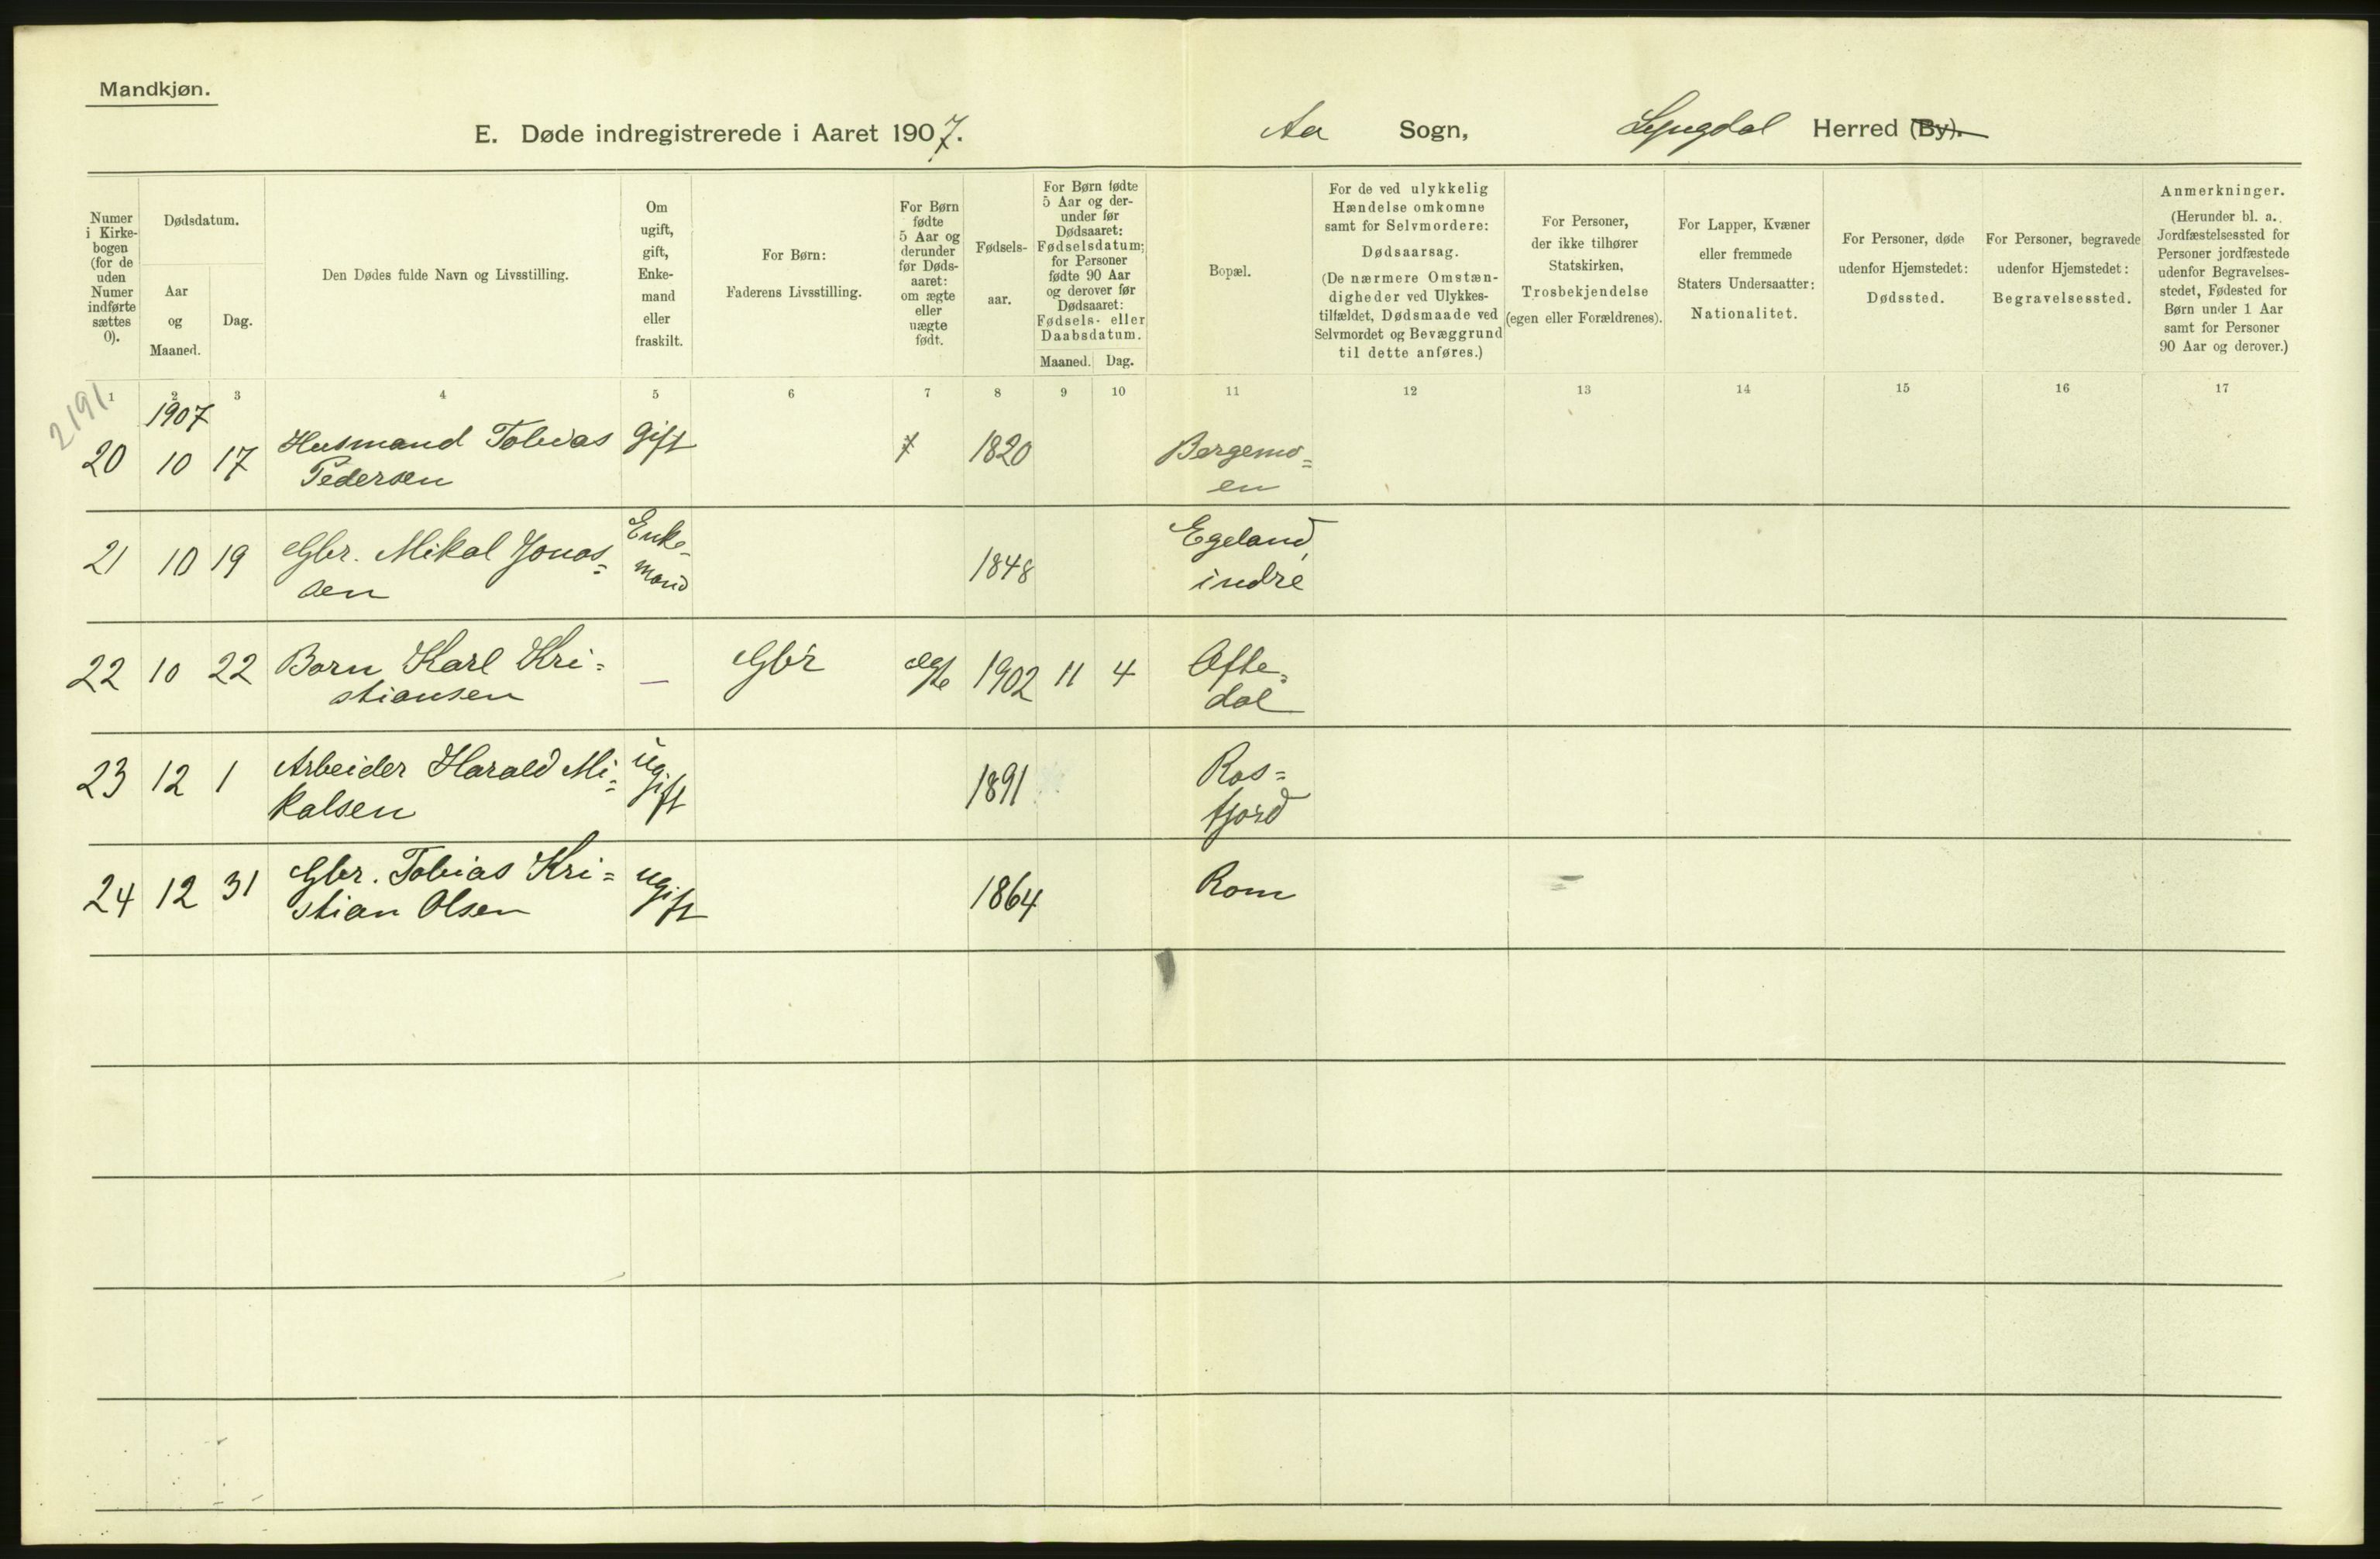 Mandkjøn.
E. Døde indregistrerede i Aaret 1907. Aa Sogn, Lyngdal Herred (By).
Numer i Kirke-bogen (for de uden Numer indførte sættes 0).
Dødsdatum.
Aar og Maaned.
Dag.
Den Dødes fulde Navn og Livsstilling.
Om ugift, gift, Enke-mand eller fraskilt.
For Børn: Faderens Livsstilling.
For Børn fødte 5 Aar og derunder før Døds-aaret: om ægte eller uægte født.
Fødsels-aar.
For Børn fødte 5 Aar og der-under før Dødsaaret: Fødselsdatum; for Personer fødte 90 Aar og derover før Dødsaaret: Fødsels- eller Daabsdatum.
Maaned. Dag.
Bopæl.
For de ved ulykkelig Hændelse omkomne samt for Selvmordere: Dødsaarsag. (De nærmere Omstæn-digheder ved Ulykkes-tilfældet, Dødsmaade ved Selvmordet og Bevæggrund til dette anføres.)
For Personer, der ikke tilhører Statskirken, Trosbekjendelse (egen eller Forældrenes).
For Lapper, Kvæner eller fremmede Staters Undersaatter: Nationalitet.
For Personer, døde udenfor Hjemstedet: Dødssted.
For Personer, begravede udenfor Hjemstedet: Begravelsessted.
Anmerkninger. (Herunder bl. a. Jordfæstelsessted for Personer jordfæstede udenfor Begravelses-stedet, Fødested for Børn under 1 Aar samt for Personer 90 Aar og derover.)
1 2 3 4 5 6 7 8 9 10 11 12 13 14 15 16 17
2191
1907
20 10 17 Husmand Tobias gift 1820 Bergemo=
Pedersen en
21 10 19 Gbr. Mikal Jonas= Enke- 1848 Egeland,
sen mand indre
22 10 22 Barn Karl Kri= — Gbr ægte 1902 11 4 Ofte=
stiansen dal
23 12 1 Arbeider Harald Mi= ugift 1891 Ros=
kalsen fjord
24 12 31 Gbr. Tobias Kri= ugift 1864 Rom
stian Olsen